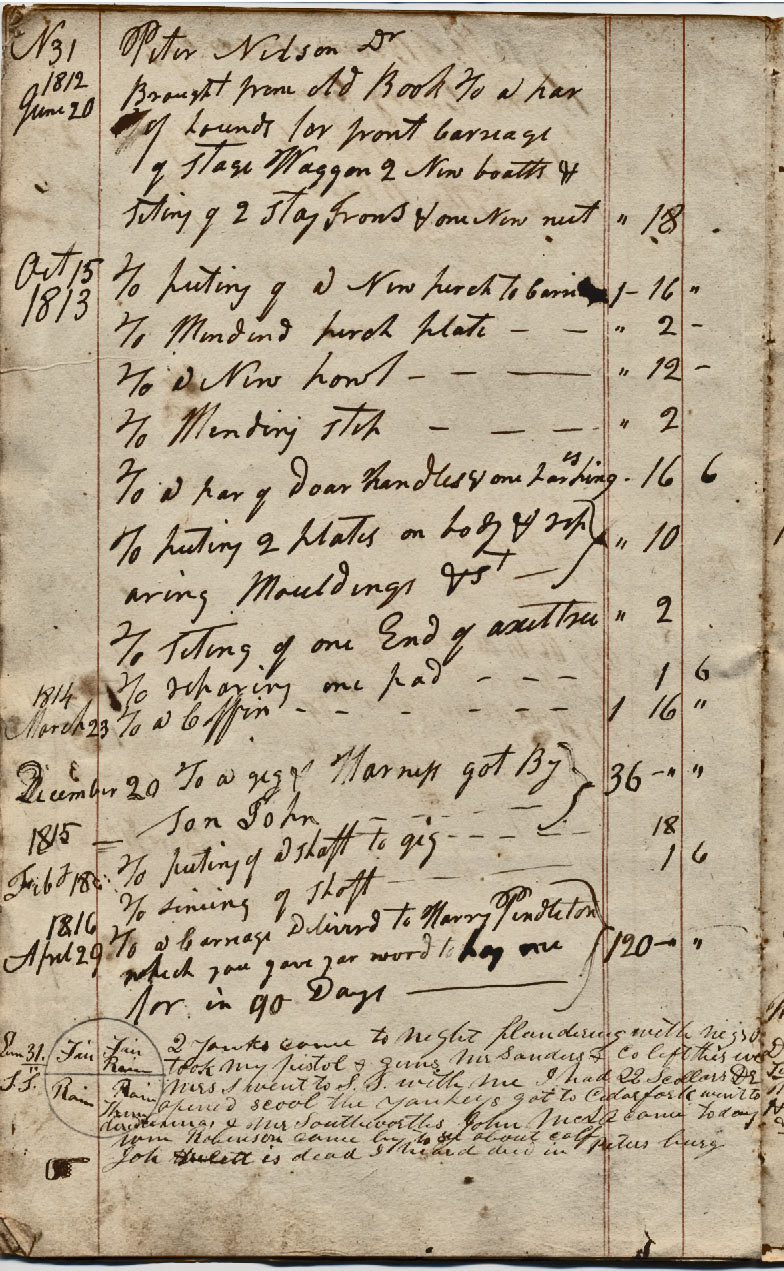 N 31 Peter Nelson Dr
1812
June 20 Brought frome old Book To a par
of hounds for front Carreage
of Stage Waggon 2 New boalts &
seting of 2 Stay Irons & one New nut " 18 .
Oct 15
1813 To puting of a New perch to Carri 1 - 16 "
To Mendend perch plate - - " 2 -
To a New howl - - — " 12 -
To Mending step - - - " 2
To a par of doar Handles & one har's hing - 16 6
To puting 2 plates on body & rep
aring Mouldings &st — } " 10
To seting of one End of axeltree " 2
To reparing one pad - - - 1 6
1814
March 23 To a Coffin - - - - - - 1 16 "
December 20 To a gig & Harness got By
Son John - - - - } 36 - " "
1815 = To puting of a Shaft to gig - - - - 18
Feb To sincing of Shaft - - - 1 6
1816
April 29 To a Carreage Delivird to Harry Pendleton
which you gave yar word to pay me
for in 90 Days — } 120 - " "
31. Fair Fair Rain 2 Yanks came to night plandering with negro
took my pistol & guns Mr Sanders & Co left this
S.S. Rain Rain Mrs S went to S. S. with me I had 22 Scollars Dr
opened scool the Yankeys got to Cedarfork went to
& Mr Southworths John came today
Wm Robinson came by to se about calf
Job is dead I heard died in Peters burg